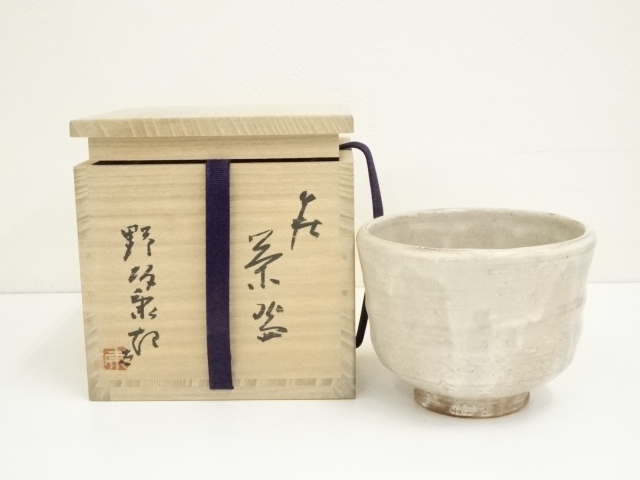 萩
茶盌
野坂康起
康